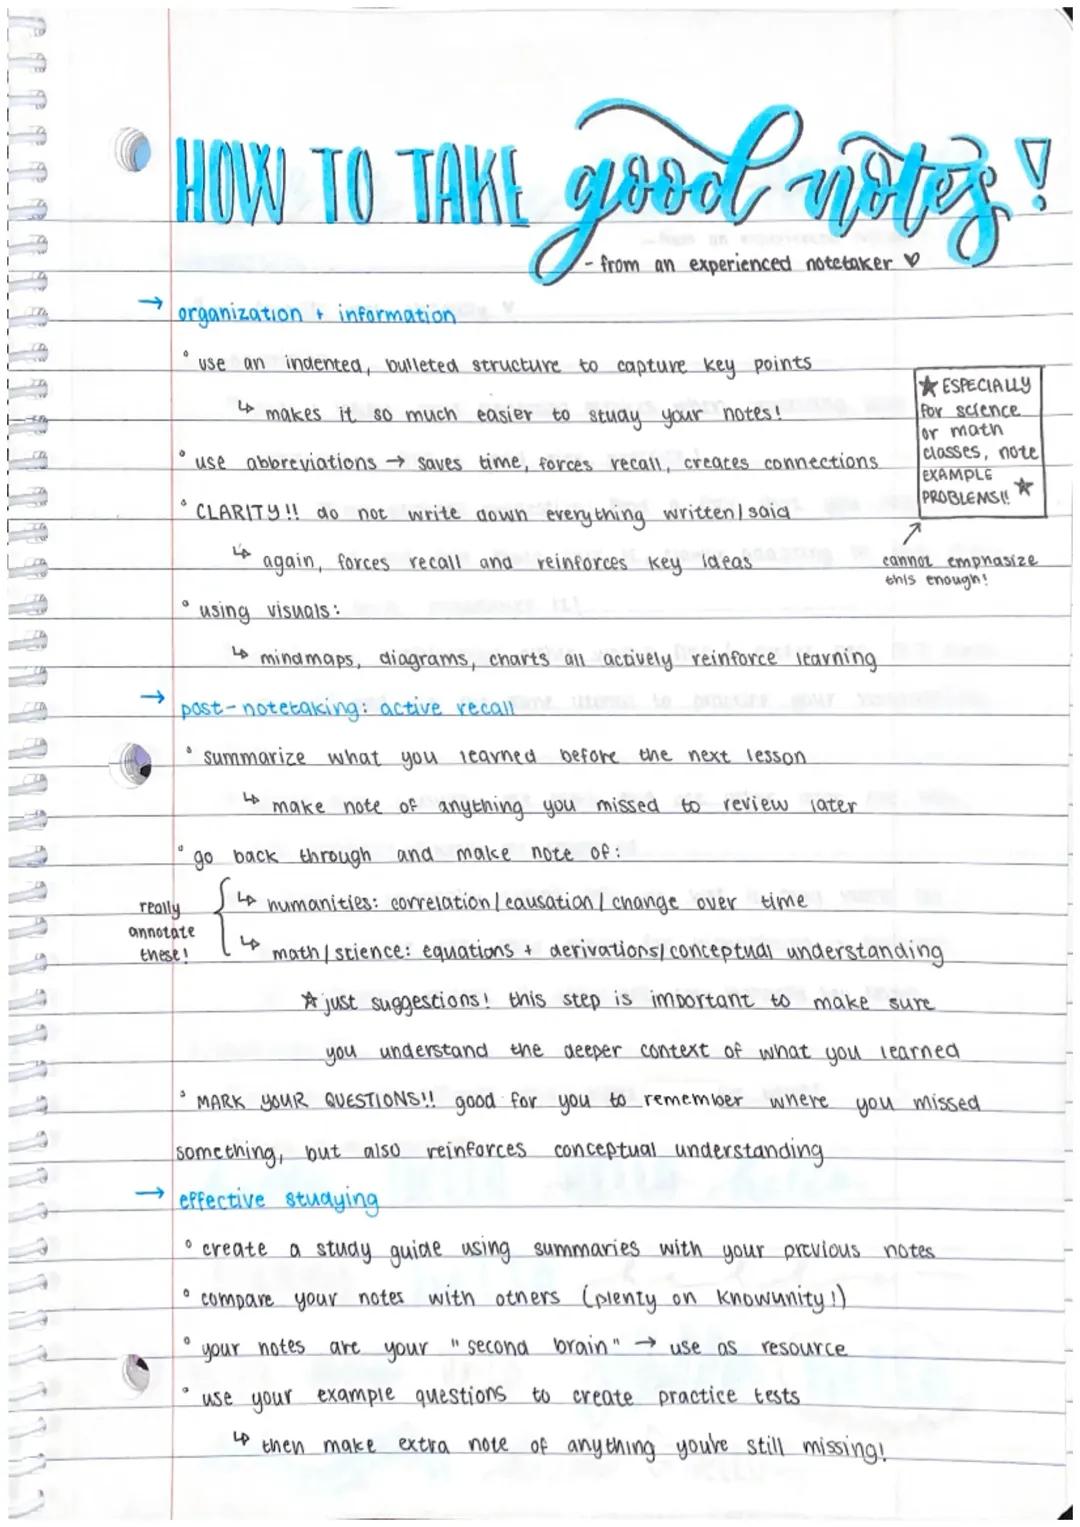 HOW TO TAKE good notes!
- from an experienced notetaker ♡
→ organization + information
° use an indented, bulleted structure to capture key points
↳ makes it so much easier to study your notes!
★ ESPECIALLY
for science
or math
classes, note
EXAMPLE
PROBLEMS!! ★
° use abbreviations → saves time, forces recall, creates connections
° CLARITY!! do not write down everything written/said
↳ again, forces recall and reinforces key ideas
cannot emphasize
this enough!
° using visuals:
↳ mindmaps, diagrams, charts all actively reinforce learning
→ post-notetaking: active recall
° summarize what you learned before the next lesson
↳ make note of anything you missed to review later
° go back through and make note of:
really
annotate
these!
↳ humanities: correlation/causation/change over time
↳ math/science: equations + derivations/conceptual understanding
☆ just suggestions! this step is important to make sure
you understand the deeper context of what you learned
° MARK YOUR QUESTIONS!! good for you to remember where you missed
something, but also reinforces conceptual understanding
→ effective studying
° create a study guide using summaries with your previous notes
° compare your notes with others (plenty on Knowunity!)
° your notes are your "second brain" → use as resource
° use your example questions to create practice tests
↳ then make extra note of anything you're still missing!